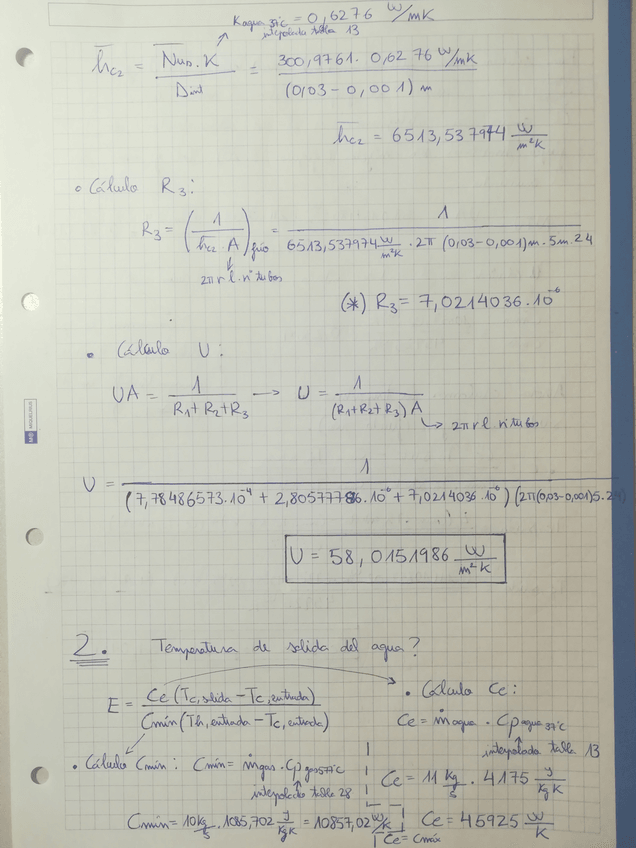 K agua 37ºC = 0,6276 W/mK
interpolada tabla 13
h̅c2 = N̅uD.K / Dint = 300,9761. 0,6276 W/mK / (0,03-0,001) m
h̅c2 = 6513,537974 W/m²K
• Cálculo R3:
R3 = (1 / h̅c2 . A)frío = 1 / 6513,537974 W/m²K . 2π (0,03-0,001)m . 5m.24
2πrl.nºtubos
(*) R3 = 7,0214036.10⁻⁶
• Cálculo U:
UA = 1 / R1+R2+R3 → U = 1 / (R1+R2+R3) A
→ 2πrl.nºtubos
U = 1 / (7,78486573.10⁻⁴ + 2,80577786.10⁻⁶ + 7,0214036.10⁻⁶) (2π(0,03-0,001)5.24)
U = 58,0151986 W/m²K
2. Temperatura de salida del agua?
E = Ce (Tc,salida - Tc,entrada) / Cmín (Th,entrada - Tc,entrada)
• Cálculo Ce:
Ce = ṁ agua . Cp agua 37ºC
interpolada tabla 13
• Cálculo Cmín: Cmín = ṁgas . Cp gas 577ºC
interpolada tabla 28
Ce = 11 kg/s . 4175 J/kgK
Cmín = 10 kg/s . 1085,702 J/kgK = 10857,02 W/K
Ce = 45925 W/K
Ce = Cmáx